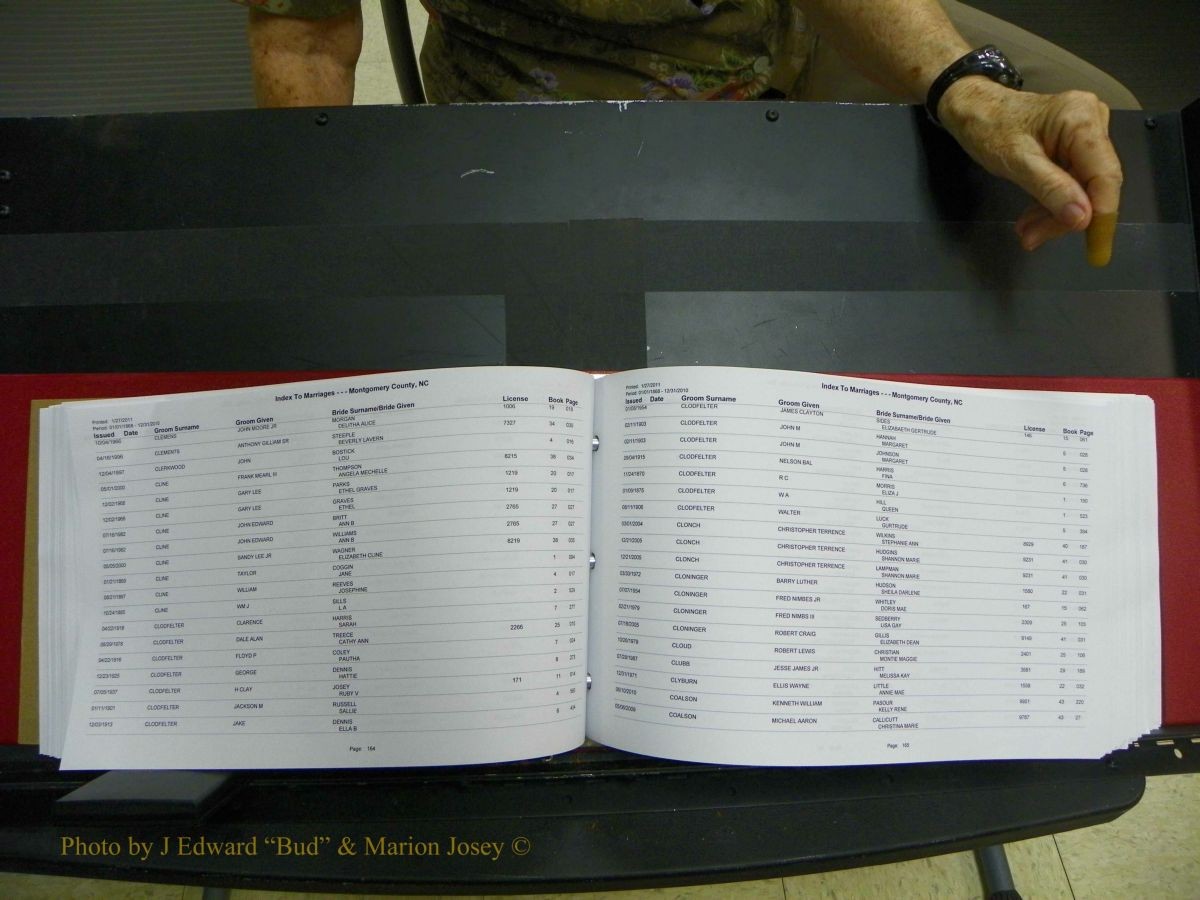 Printed: 1/27/2011
Index To Marriages - - - Montgomery County, NC
Period: 01/01/1868 - 12/31/2010
Issued Date Groom Surname Groom Given Bride Surname/Bride Given License Book Page
CLEMENS JOHN MOORE JR MORGAN 1006 19
DELITHA ALICE
04/16/1996 CLEMENTS ANTHONY GILLIAM SR STEEPLE 7327 34
BEVERLY LAVERN
12/04/1897 CLERKWOOD JOHN BOSTICK 4
LOU
05/01/2000 CLINE FRANK MEARL III THOMPSON 8215 38 034
ANGELA MECHELLE
12/02/1966 CLINE GARY LEE PARKS 1219 20 017
ETHEL GRAVES
12/02/1966 CLINE GARY LEE GRAVES 1219 20 017
ETHEL
07/16/1982 CLINE JOHN EDWARD BRITT 2765 27 027
ANN B
07/16/1982 CLINE JOHN EDWARD WILLIAMS 2765 27 027
ANN B
CLINE SANDY LEE JR WAGNER 8219 38
ELIZABETH CLINE
CLINE TAYLOR COGGIN 1
JANE
CLINE WILLIAM REEVES 4 017
JOSEPHINE
CLINE WM J SILLS 2
L A
04/22/1918 CLODFELTER CLARENCE HARRIS 7
SARAH
CLODFELTER DALE ALAN TREECE 2266 25
CATHY ANN
04/22/1916 CLODFELTER FLOYD P COLEY 7
PAUTHA
12/23/1925 CLODFELTER GEORGE DENNIS 8
HATTIE
07/05/1937 CLODFELTER H CLAY JOSEY 171 11 014
RUBY V
01/11/1901 CLODFELTER JACKSON M RUSSELL 4
SALLIE
CLODFELTER JAKE DENNIS 6
ELLA B
Page: 164
Printed: 1/27/2011
Index To Marriages - - - Montgomery County, NC
Period: 01/01/1868 - 12/31/2010
Issued Date Groom Surname Groom Given Bride Surname/Bride Given License Book Page
CLODFELTER JAMES CLAYTON SIDES 15 061
ELIZABAETH GERTRUDE
02/11/1903 CLODFELTER JOHN M HANNAH 5 028
MARGARET
02/11/1903 CLODFELTER JOHN M JOHNSON 5 028
MARGARET
CLODFELTER NELSON BAL HARRIS 6 736
FINA
11/24/1870 CLODFELTER R C MORRIS 1
ELIZA J
CLODFELTER W A HILL 1 523
QUEEN
CLODFELTER WALTER LUCK 5
GURTRUDE
CLONCH CHRISTOPHER TERRENCE WILKINS 8929 40 187
STEPHANIE ANN
12/21/2005 CLONCH CHRISTOPHER TERRENCE HUDGINS 9231 41 030
SHANNON MARIE
12/21/2005 CLONCH CHRISTOPHER TERRENCE LAMPMAN 9231 41 030
SHANNON MARIE
CLONINGER BARRY LUTHER HUDSON 22
SHEILA DARLENE
07/07/1954 CLONINGER FRED NIMBES JR WHITLEY 167 15 062
DORIS MAE
02/21/1979 CLONINGER FRED NIMBS III SEDBERRY 25
LISA GAY
07/18/2005 CLONINGER ROBERT CRAIG GILLIS 9149 41 031
ELIZABETH DEAN
CLOUD ROBERT LEWIS CHRISTIAN 2401 25
MONTIE MAGGIE
CLUBB JESSE JAMES JR HITT 29
MELISSA KAY
12/31/1971 CLYBURN ELLIS WAYNE LITTLE 22 032
ANNIE MAE
COALSON KENNETH WILLIAM PASOUR 43 220
KELLY RENE
COALSON MICHAEL AARON CALLICUTT 9787 43
CHRISTINA MARIE
Page: 165
Photo by J Edward “Bud” & Marion Josey ©